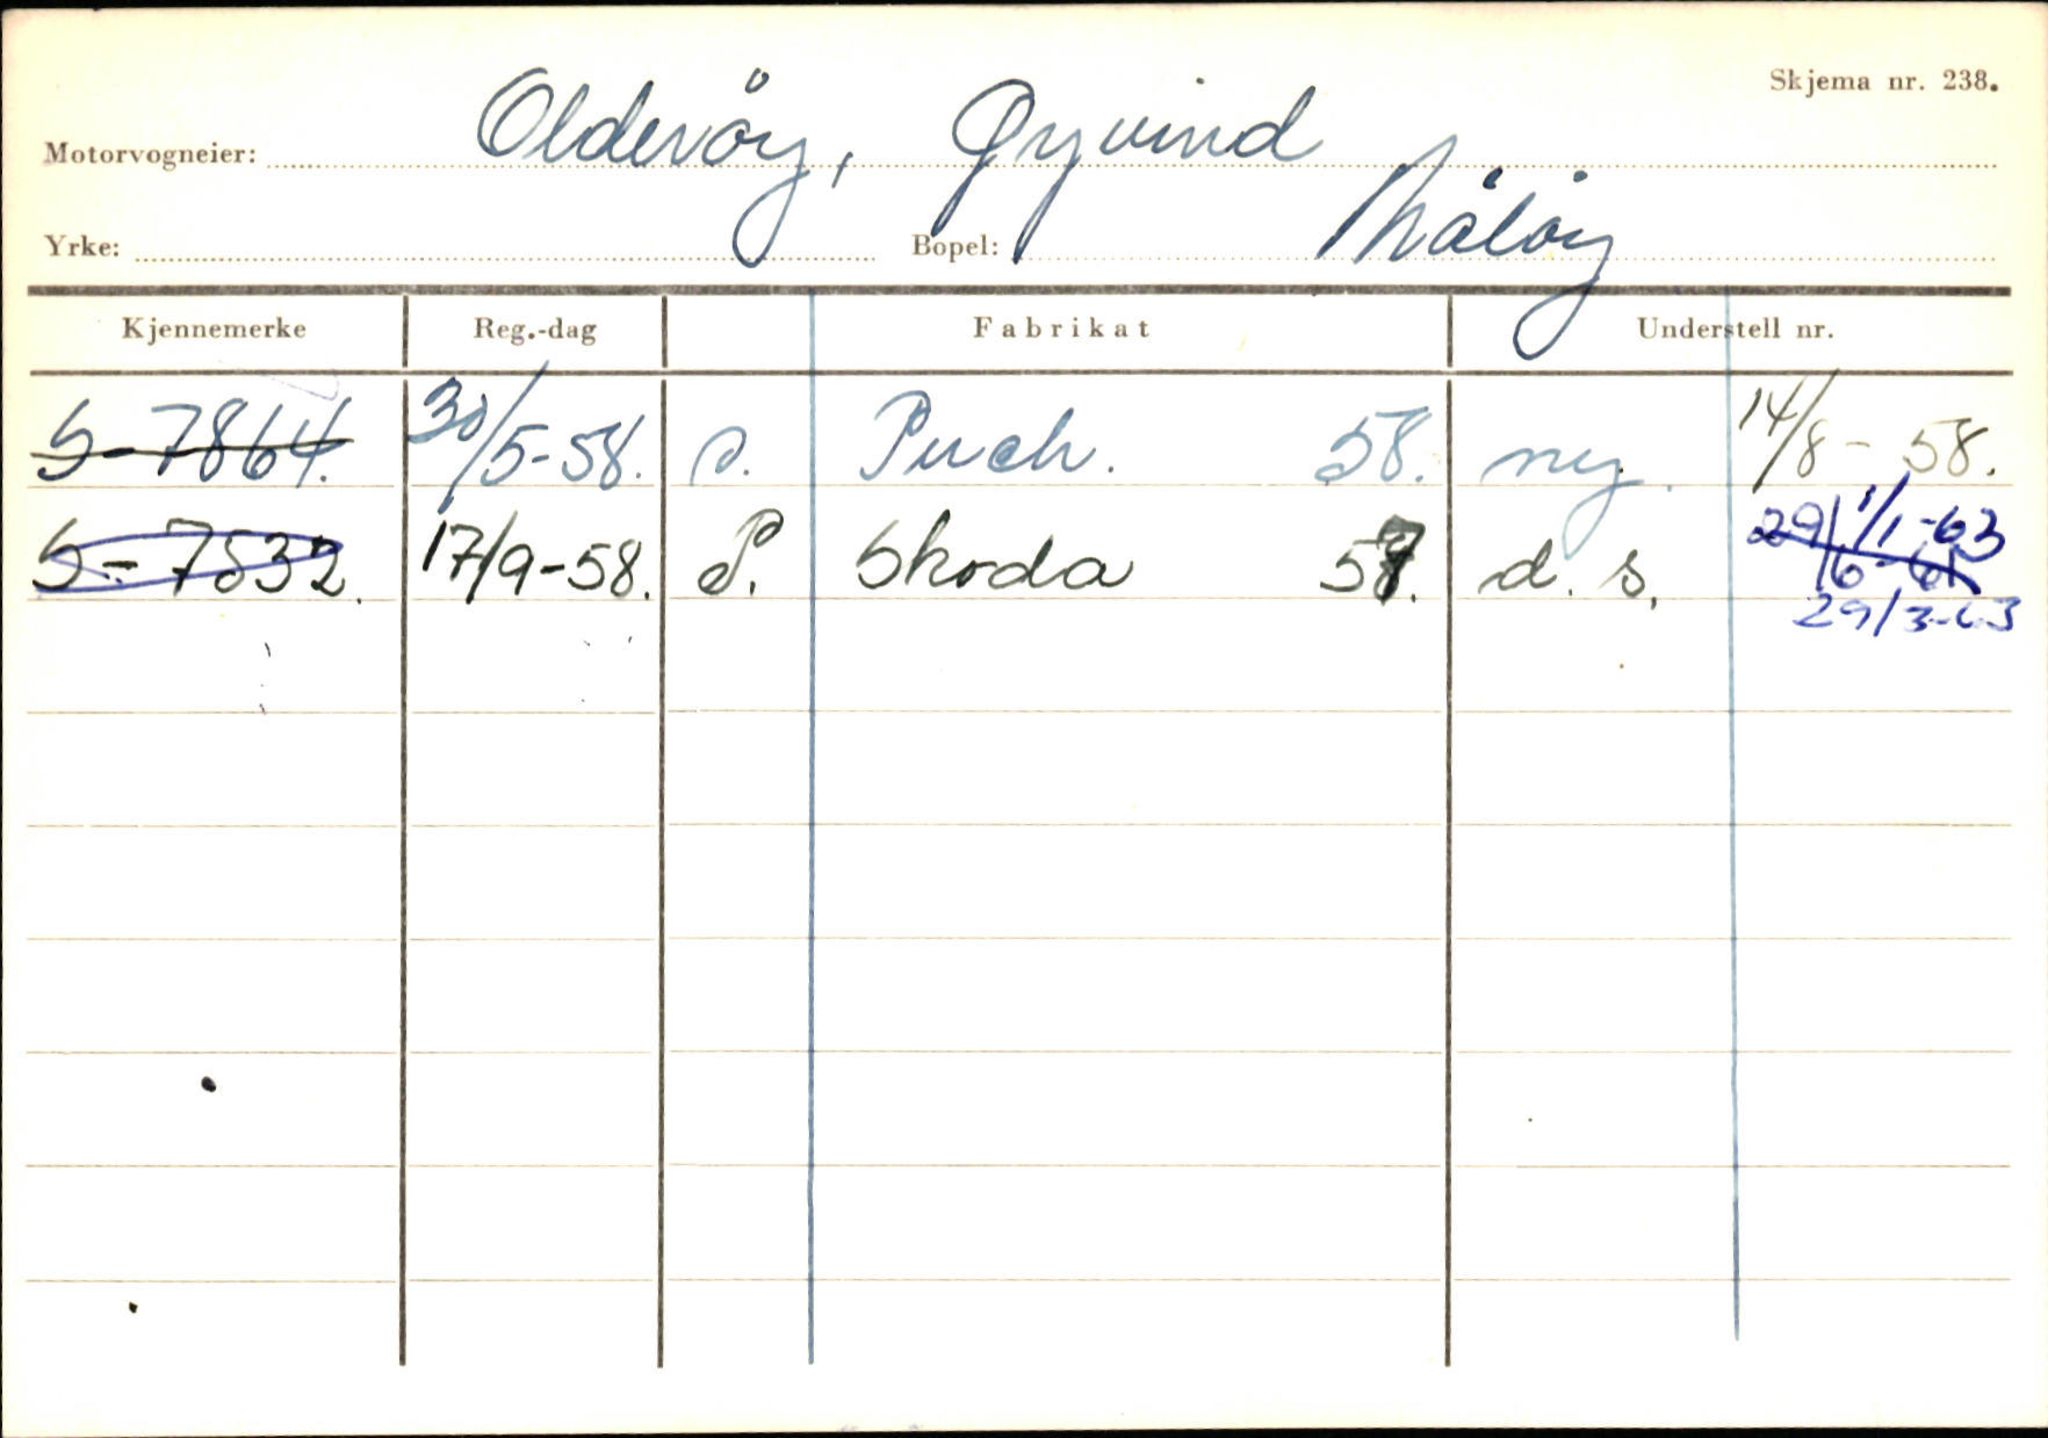 Skjema nr. 238.
Motorvogneier: Olderöy, Øyvind
Yrke: Bopel: Måløy
Kjennemerke Reg.-dag Fabrikat Understell nr.
S-7864. 30/5-58. P. Puch. 58. ny. 14/8-58.
S-7832. 17/9-58. P. Skoda 57. d.s. 29/6-61 1/1-63
29/3-63